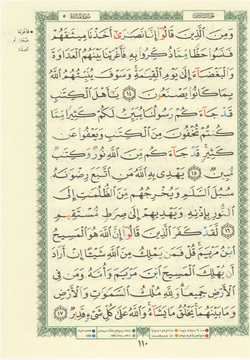 وَمِنَ الَّذِينَ قَالُوا إِنَّا نَصَارَىٰ أَخَذْنَا مِيثَاقَهُمْ
فَنَسُوا حَظًّا مِمَّا ذُكِّرُوا بِهِ فَأَغْرَيْنَا بَيْنَهُمُ الْعَدَاوَةَ
وَالْبَغْضَاءَ إِلَىٰ يَوْمِ الْقِيَامَةِ وَسَوْفَ يُنَبِّئُهُمُ اللَّهُ
بِمَا كَانُوا يَصْنَعُونَ ١٤ يَا أَهْلَ الْكِتَابِ
قَدْ جَاءَكُمْ رَسُولُنَا يُبَيِّنُ لَكُمْ كَثِيرًا مِمَّا
كُنْتُمْ تُخْفُونَ مِنَ الْكِتَابِ وَيَعْفُو عَنْ
كَثِيرٍ قَدْ جَاءَكُمْ مِنَ اللَّهِ نُورٌ وَكِتَابٌ
مُبِينٌ ١٥ يَهْدِي بِهِ اللَّهُ مَنِ اتَّبَعَ رِضْوَانَهُ
سُبُلَ السَّلَامِ وَيُخْرِجُهُمْ مِنَ الظُّلُمَاتِ إِلَى
النُّورِ بِإِذْنِهِ وَيَهْدِيهِمْ إِلَىٰ صِرَاطٍ مُسْتَقِيمٍ
١٦ لَقَدْ كَفَرَ الَّذِينَ قَالُوا إِنَّ اللَّهَ هُوَ الْمَسِيحُ
ابْنُ مَرْيَمَ قُلْ فَمَنْ يَمْلِكُ مِنَ اللَّهِ شَيْئًا إِنْ أَرَادَ
أَنْ يُهْلِكَ الْمَسِيحَ ابْنَ مَرْيَمَ وَأُمَّهُ وَمَنْ فِي
الْأَرْضِ جَمِيعًا وَلِلَّهِ مُلْكُ السَّمَاوَاتِ وَالْأَرْضِ
وَمَا بَيْنَهُمَا يَخْلُقُ مَا يَشَاءُ وَاللَّهُ عَلَىٰ كُلِّ شَيْءٍ قَدِيرٌ ١٧
١١٠